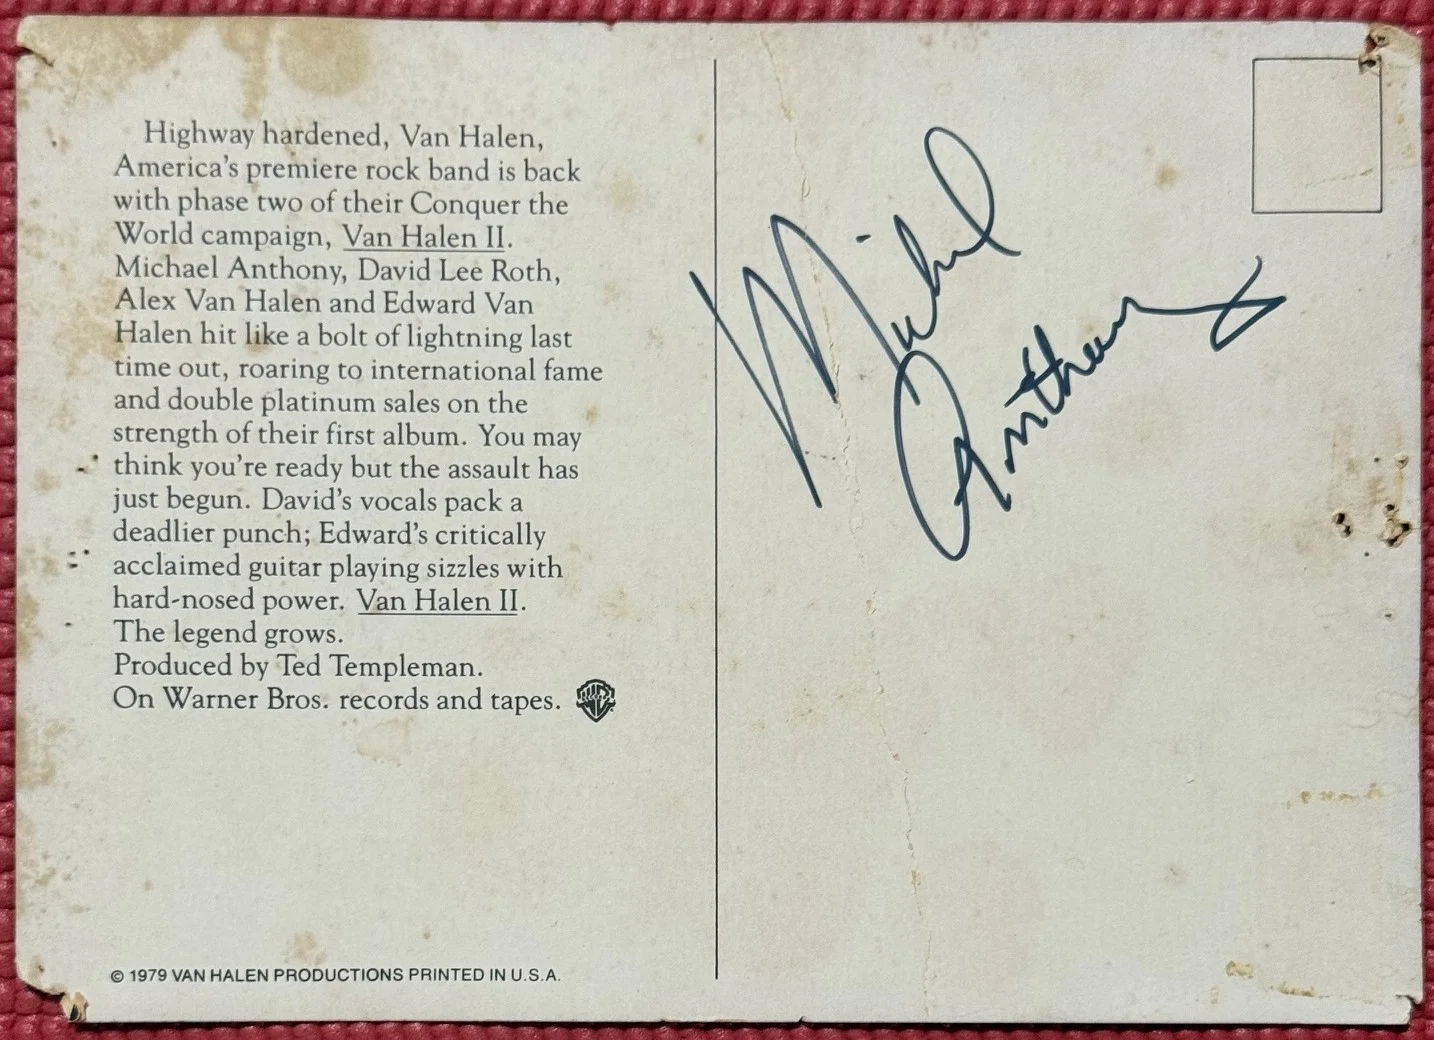 Highway hardened, Van Halen,
America's premiere rock band is back
with phase two of their Conquer the
World campaign, Van Halen II.
Michael Anthony, David Lee Roth,
Alex Van Halen and Edward Van
Halen hit like a bolt of lightning last
time out, roaring to international fame
and double platinum sales on the
strength of their first album. You may
think you're ready but the assault has
just begun. David's vocals pack a
deadlier punch; Edward's critically
acclaimed guitar playing sizzles with
hard-nosed power. Van Halen II.
The legend grows.
Produced by Ted Templeman.
On Warner Bros. records and tapes.
© 1979 VAN HALEN PRODUCTIONS PRINTED IN U.S.A.
Michael
Anthony